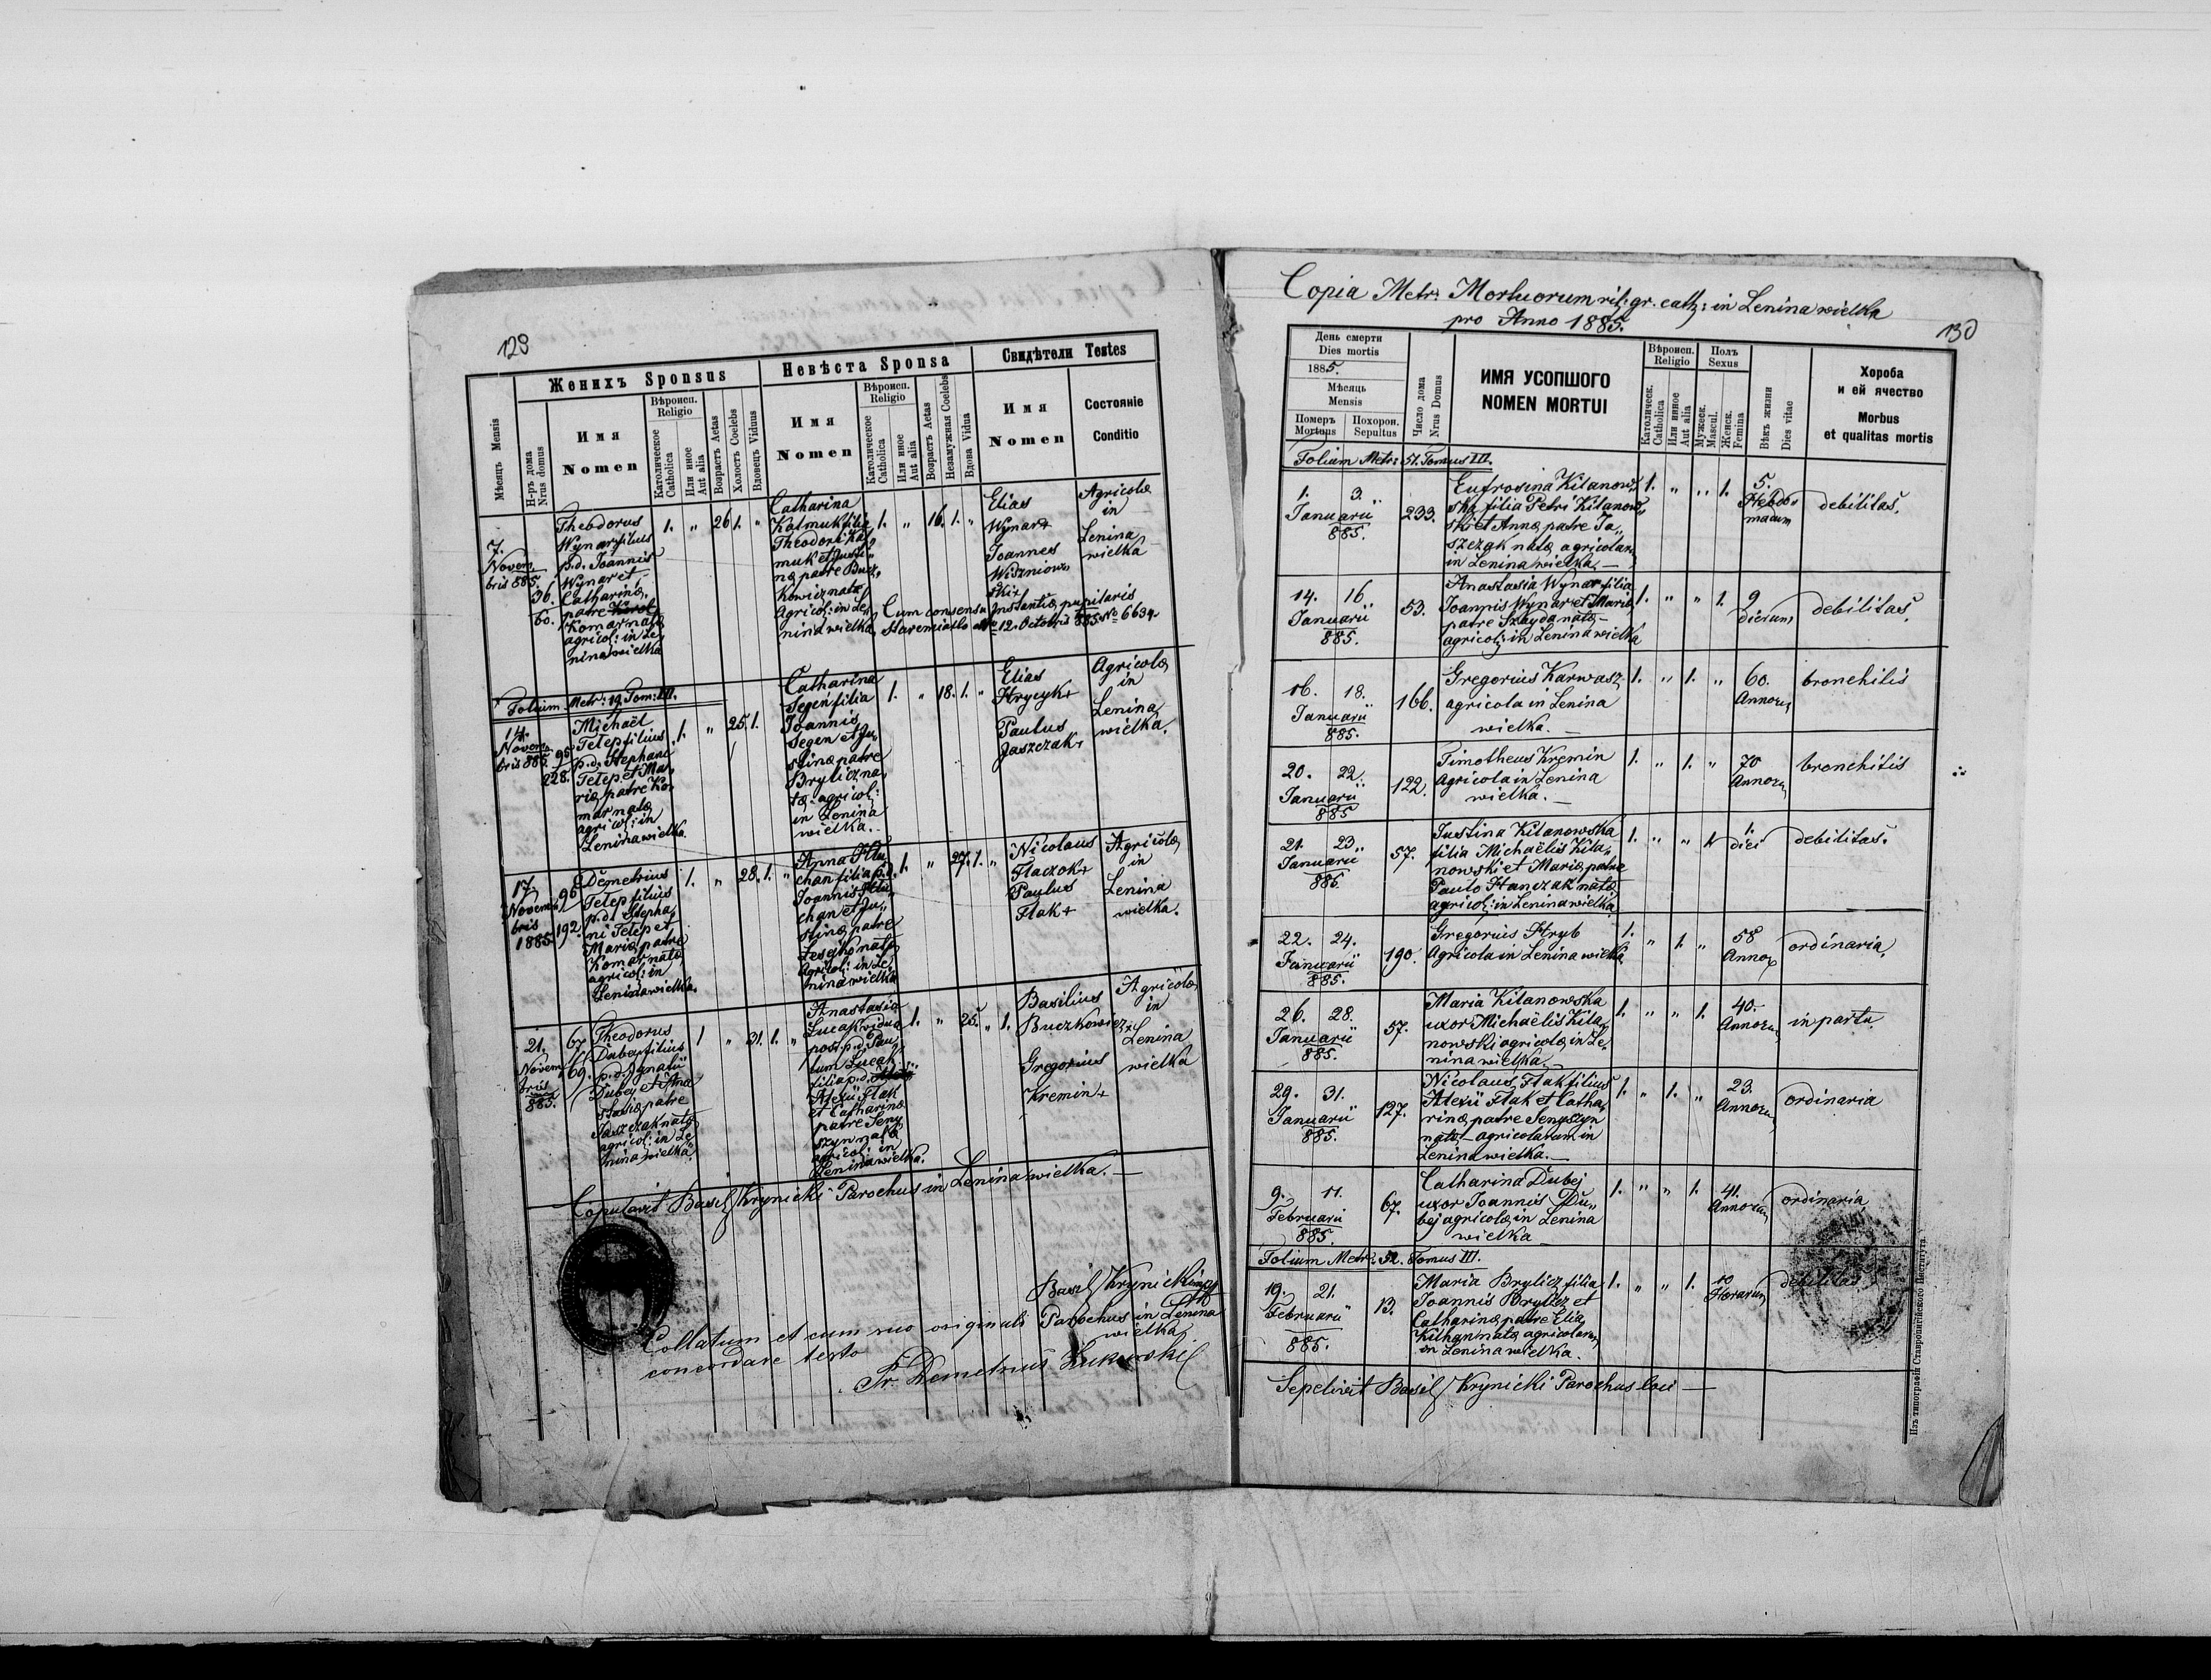 129
Женихъ Sponsus
Невѣста Sponsa
Свидѣтели Testes
Мѣсяцъ Mensis
Н-ръ дома
Nrus domus
Имя
Nomen
Вѣроисп.
Religio
Католическое
Catholica
Или иное
Aut alia
Возрастъ Aetas
Холостъ Coelebs
Вдовецъ Viduus
Имя
Nomen
Вѣроисп.
Religio
Католическое
Catholica
Или иное
Aut alia
Возрастъ Aetas
Незамужная Coelebs
Вдова Vidua
Имя
Nomen
Состояніе
Conditio
7.
Novem
bris 885.
36.
60.
Theodorus
Wynar filius
p.d. Joannis
Wynar et
Catharinæ,
patre
Komar natæ
agricol: in Le
nina wielka
1. " 26 1. "
Catharina
Kalmuk filia
Theodori Kal
muk et Justi
næ patre Bucz
kowicz natæ
Agricol: in Le
nina wielka
1. " 16. 1. "
Elias
Wynar+
Joannes
Wiszniow
ski+
Agricolæ
in
Lenina
wielka
Cum consensu Instantiæ pupilaris
Staremiasto 12. Octobris 885. No 6634.
Folium Metr: 19. Tom: III.
14.
Novem
bris 885.
95
228.
Michaël
Telep filius
p.d. Stephani
Telep et Ma
riæ patre Ko
mar natæ
agricol: in
Lenina wielka.
1. " 25. 1.
Catharina
Segen filia
Joannis
Segen et Ju
stinæ patre
Brylicz na
tæ agricol:
in Lenina
wielka.
1. " 18. 1. "
Elias
Hrycyk+
Paulus
Jaszczak+
Agricolæ
in
Lenina
wielka.
17.
Novem
bris
1885.
95
192.
Demetrius
Telep filius
p.d. Stepha
ni Telep et
Mariæ patre
Komar natæ
agricol: in
Lenina wielka.
1. " 28. 1. "
Anna Hlu
chan filia p.d.
Joannis Hlu
chan et Ju
stinæ patre
Lesyk natæ
Agricol: in Le
nina wielka
1. " 27. 1. "
Nicolaus
Flaczok+
Paulus
Flak+
Agricolæ
in
Lenina
wielka.
21.
Novem
bris
885.
67
169.
Theodorus
Dubej filius
p.d. Ignatii
Dubej et Ana
stasiæ patre
Jaszczak natæ
agricol: in Le
nina wielka
1 " 31. 1. "
Anastasia
Lucak vidua
post p.d. Pau
lum Lucak
filia p.d.
Alexii Flak
et Catharinæ
patre Seny
szyn natæ
agricol: in
Lenina wielka.
1. " 25. " 1.
Basilius
Buczkowicz+
Gregorius
Kremin+
Agricolæ
in
Lenina
wielka
Copulavit Basil Krynicki Parochus in Lenina wielka.
Basil Krynicki
Parochus in Lenina
wielka
Collatum et cum suo originali
concordare testor
Pr. Demetrius Lukowski
Copia Metr: Mortuorum rit: gr. cath: in Lenina wielka
pro Anno 1885.
130
День смерти
Dies mortis
1885.
Мѣсяцъ
Mensis
Померъ
Mortuus
Похорон.
Sepultus
Число дома
Nrus Domus
ИМЯ УСОПШОГО
NOMEN MORTUI
Вѣроисп.
Religio
Католическ.
Catholica
Или инное
Aut alia
Полъ
Sexus
Мужеск.
Mascul.
Женск.
Femina
Вѣкъ жизни
Dies vitae
Хороба
и ей ячество
Morbus
et qualitas mortis
Folium Metr: 51. Tomus III.
1. 3.
Januarii
885.
233.
Eufrosina Kitanow
ska filia Petri Kitanow
ski et Annæ patre Ja
szczak natæ agricolarum
in Lenina wielka.
1. " " 1.
5.
Hebdo
madum
debilitas.
14. 16.
Januarii
885.
53.
Anastasia Wynar filia
Joannis Wynar et Mariæ
patre Szayda natæ
agricol: in Lenina wielka
1. " " 1.
9
dierum
debilitas.
16. 18.
Januarii
885.
166.
Gregorius Karwasz
agricola in Lenina
wielka.
1. " 1. "
60.
Annorum
bronchitis
20. 22.
Januarii
885
122.
Timotheus Kremin
Agricola in Lenina
wielka.
1. " 1. "
70
Annorum
bronchitis
21. 23.
Januarii
885.
57.
Justina Kitanowska
filia Michaëlis Kita
nowski et Mariæ patre
Paulo Hanczak natæ
agricol: in Lenina wielka
1. " " 1.
1.
diei
debilitas.
22. 24.
Januarii
885.
190.
Gregorius Hryb
Agricola in Lenina wielka
1. " 1. "
58
Annor
ordinaria
26. 28.
Januarii
885.
57.
Maria Kitanowska
uxor Michaëlis Kita
nowski agricolæ in Le
nina wielka
1. " " 1.
40.
Annorum
in partu
29. 31.
Januarii
885.
127.
Nicolaus Flak filius
Alexii Flak et Catha
rinæ patre Senyszyn
natæ agricolarum in
Lenina wielka.
1. " 1. "
23.
Annorum
ordinaria
9. 11.
Februarii
885.
67.
Catharina Dubej
uxor Joannis Du
bej agricolæ in Lenina
wielka
1. " " 1.
41.
Annorum
ordinaria
Folium Metr: 52. Tomus III.
19. 21.
Februarii
885.
13.
Maria Brylicz filia
Joannis Brylicz et
Catharinæ patre Elia
Kithan natæ agricolarum
in Lenina wielka.
1. " " 1.
10
Horarum
debilitas
Sepelivit Basil Krynicki Parochus loci
Изъ типографіи Ставропигійского Института